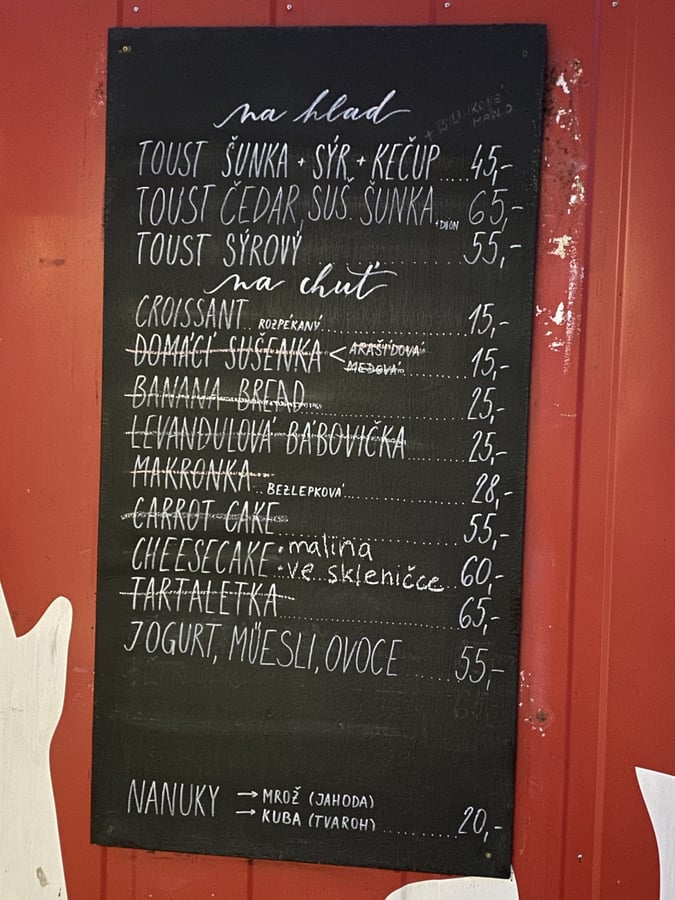 na hlad
TOUST ŠUNKA + SÝR + KEČUP.... 45,-
TOUST ČEDAR, SUŠ. ŠUNKA +DIJON 65,-
TOUST SÝROVÝ.... 55,-
na chuť
CROISSANT.. ROZPÉKANÝ.... 15,-
DOMÁCÍ SUŠENKA < ARAŠÍDOVÁ
MEDOVÁ.... 15,-
BANANA BREAD.... 25,-
LEVANDULOVÁ BÁBOVIČKA.... 25,-
MAKRONKA.. BEZLEPKOVÁ.... 28,-
CARROT CAKE.... 55,-
CHEESECAKE • malina
• ve skleničce 60,-
TARTALETKA.... 65,-
JOGURT, MÜESLI, OVOCE.... 55,-
NANUKY → MROŽ (JAHODA)
→ KUBA (TVAROH).... 20,-